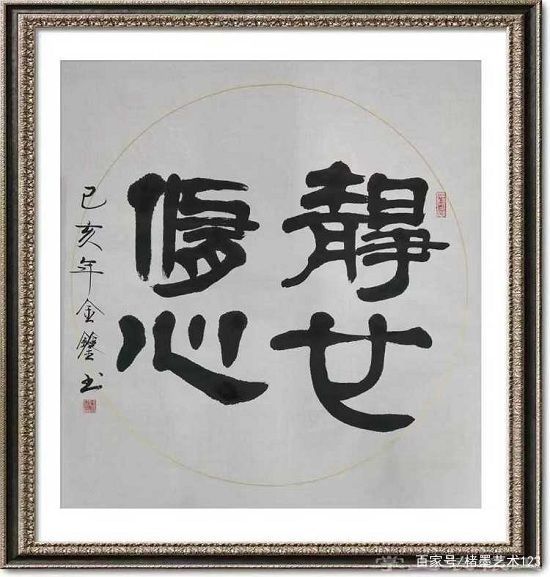 靜女
修心
己亥年金书
百家号/楮墨艺术123